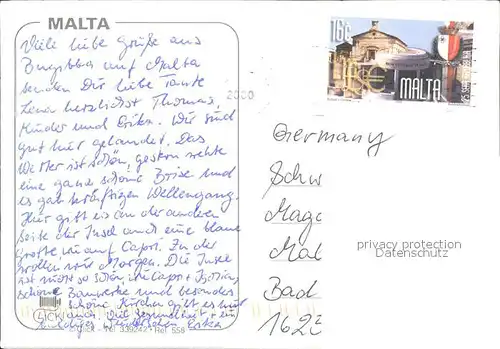 MALTA
Viele liebe Grüße aus
Bugibba auf Malta
senden Dir liebe Tante
Lena herzlichst Thomas,
Kinder und Erika. Wir sind
gut hier gelandet. Das
Wetter ist schön, gestern wehte
eine ganz schöne Brise und
es gab kräftigen Wellengang.
Hier gibt es an der anderen
Seite der Insel auch eine blaue
Grotte wie auf Capri. Zu der
wollen wir Morgen. Die Insel
ist nicht so schön wie Capri +
schöne Bauwerke und besonders
schöne Kirchen gibt es hier
auch. Viel Gesundheit + ein
Wiedersehen Erika
CLICK
Tel 339242 • Ref 558
2000
16c
MALTA
Germany
Schw
Mag
Mal
Bad
1622
privacy protection
Datenschutz